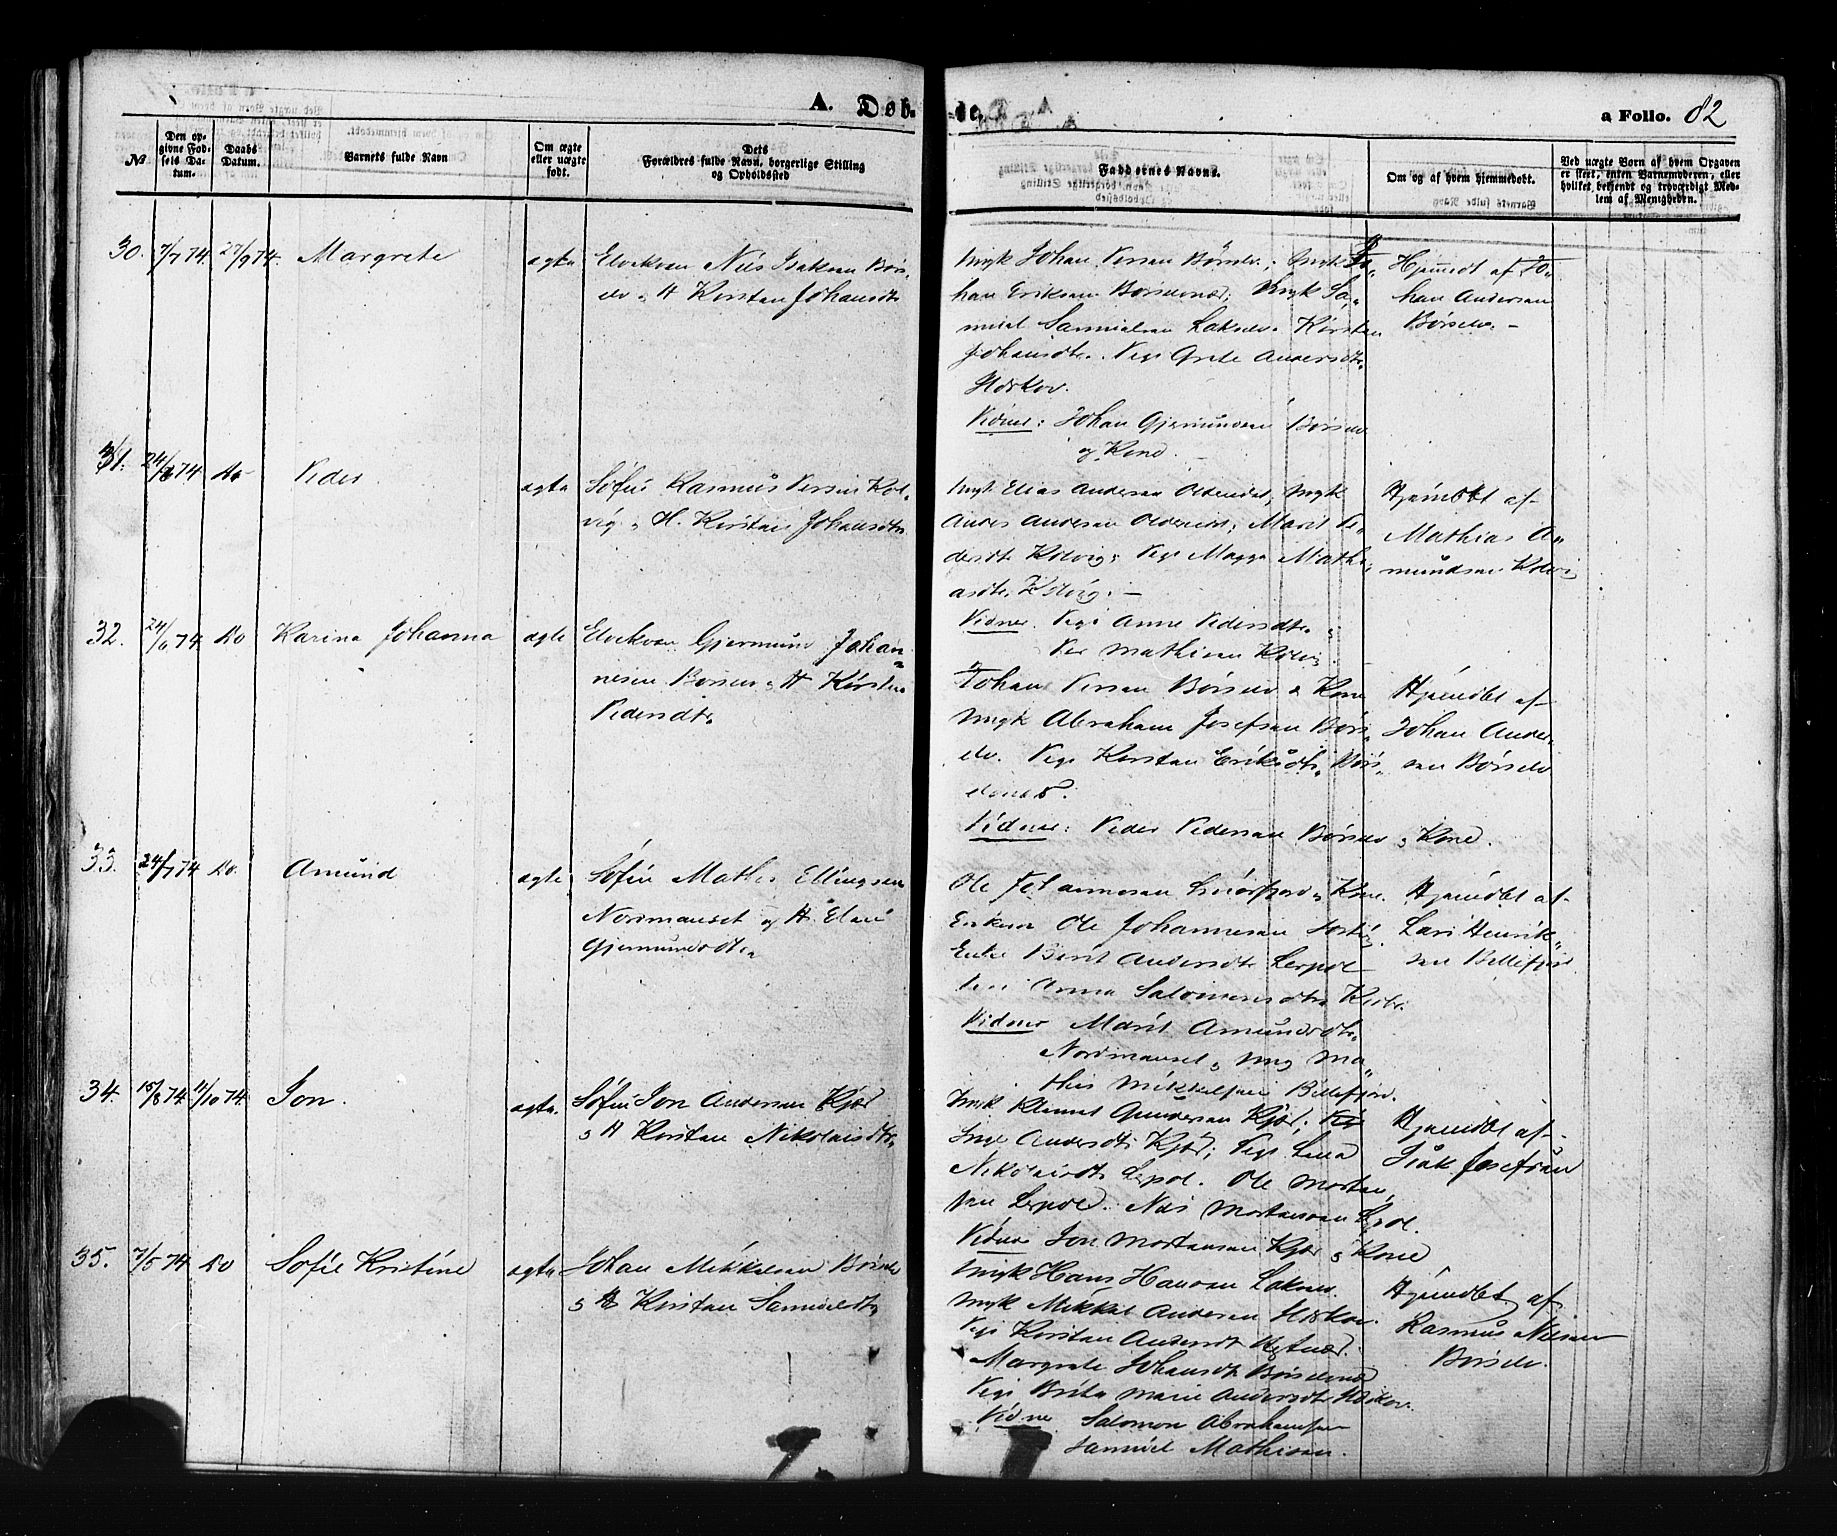 A. Døb-
-te.
a Folio. 82
No
Den op-
givne Fød-
sels Da-
tum.
Daabs
Datum.
Barnets fulde Navn
Om ægte
eller uægte
født.
Dets
Forældres fulde Navn, borgerlige Stilling
og Opholdssted
Faddernes Navne.
Om og af hvem hjemmedøbt.
Ved uægte Børn af hvem Opgaven
er skeet, enten Barnemoderen, eller
hvilket bekjendt og troværdigt Med-
lem af Menigheden.
30. 7/7 74. 27/9 74. Margrete
ægte
Elvekvæn Nils Isaksen Børs-
elv & H Kirsten Johansdtr
Ungk Johan Persen Børselv; Ungk Jo-
han Eriksen Børselvnæs; Ungk Sa-
muel Samuelsen Lakselv. Kirsten
Johansdtr. Pige Grete Andersdtr
Vidner: Johan Gjermundsen Børselv
og Kone.
Hjemdt af Jo-
han Andersen
Børselv. -
31. 24/6 74. Do Peder
ægte
Søfin Rasmus Persen Kol-
vig & H. Kirsten Johansdtr
Ungk Elias Andersen Oldereidet; Ungk
Anders Andersen Oldereidet; Marit Pe-
dersdtr Kolvig; Pige Magga Mathi-
asdtr. Kolvig. -
Vidner Pige Anne Pedersdtr &
Per Mathisen Kolvig.
Hjemdøbt af
Mathias A-
mundsen Kolvig
32. 24/6 74. Do Karina Johanna
ægte
Elvekvæn Gjermund Johan-
nesen Børselv & H Kirsten
Pedersdtr
Johan Persen Børselv & Kone
Ungk Abraham Josefsen Børs-
elv. Pige Kirsten Eriksdtr Børs-
elvnæs.
Vidner: Peder Pedersen Børselv & Kone.
Hjemdøbt af
Johan Ander-
sen Børselv
33. 24/7 74 Do. Amund
ægte
Søfin Mathis Ellingsen
Normanset og H. Elen
Gjermundsdtr
Ole Johannesen Smørfjord & Kone.
Enkem Ole Johannesen
Enke Berit Andersdtr Lerpol
Pige Anna Salomonsdtr
Vidner Marit Amundsdtr
Normanset & Ung Ma-
this Mikkelsen Billefjord.
Hjemdøbt af
Lars Henrik-
sen Billefjord.
34. 15/8 74. 11/10 74. Jon.
ægte.
Søfin Jon Andersen Kjæs
& H Kirsten Nikolaisdtr
Ungk Klemet Gundersen Kjæs; Pige
Inge Andersdtr Kjæs; Pige Lena
Nikolaisdtr Lerpol. Ole Morten-
sen Lerpol. Nils Mortensen Lerpol.
Vidner Jon Mortensen Kjæs & Kone
Hjemdøbt af
Isak Josefsen
35. 7/5 74 Do Sofie Kristine
ægte
Johan Mikkelsen Børselv
& H Kirsten Samuelsdtr
Ungk Hans Hansen Lakselv.
Ungk Mikkel Andersen
Pige Kirsten Andersdt
Margrete Johansdtr Børselvnæs
Pige Brita Marie Andersdtr
Vidner Salomon Abrahamsen
Samuel Mathisen.
Hjemdøbt af
Rasmus Nilsen
Børselv.